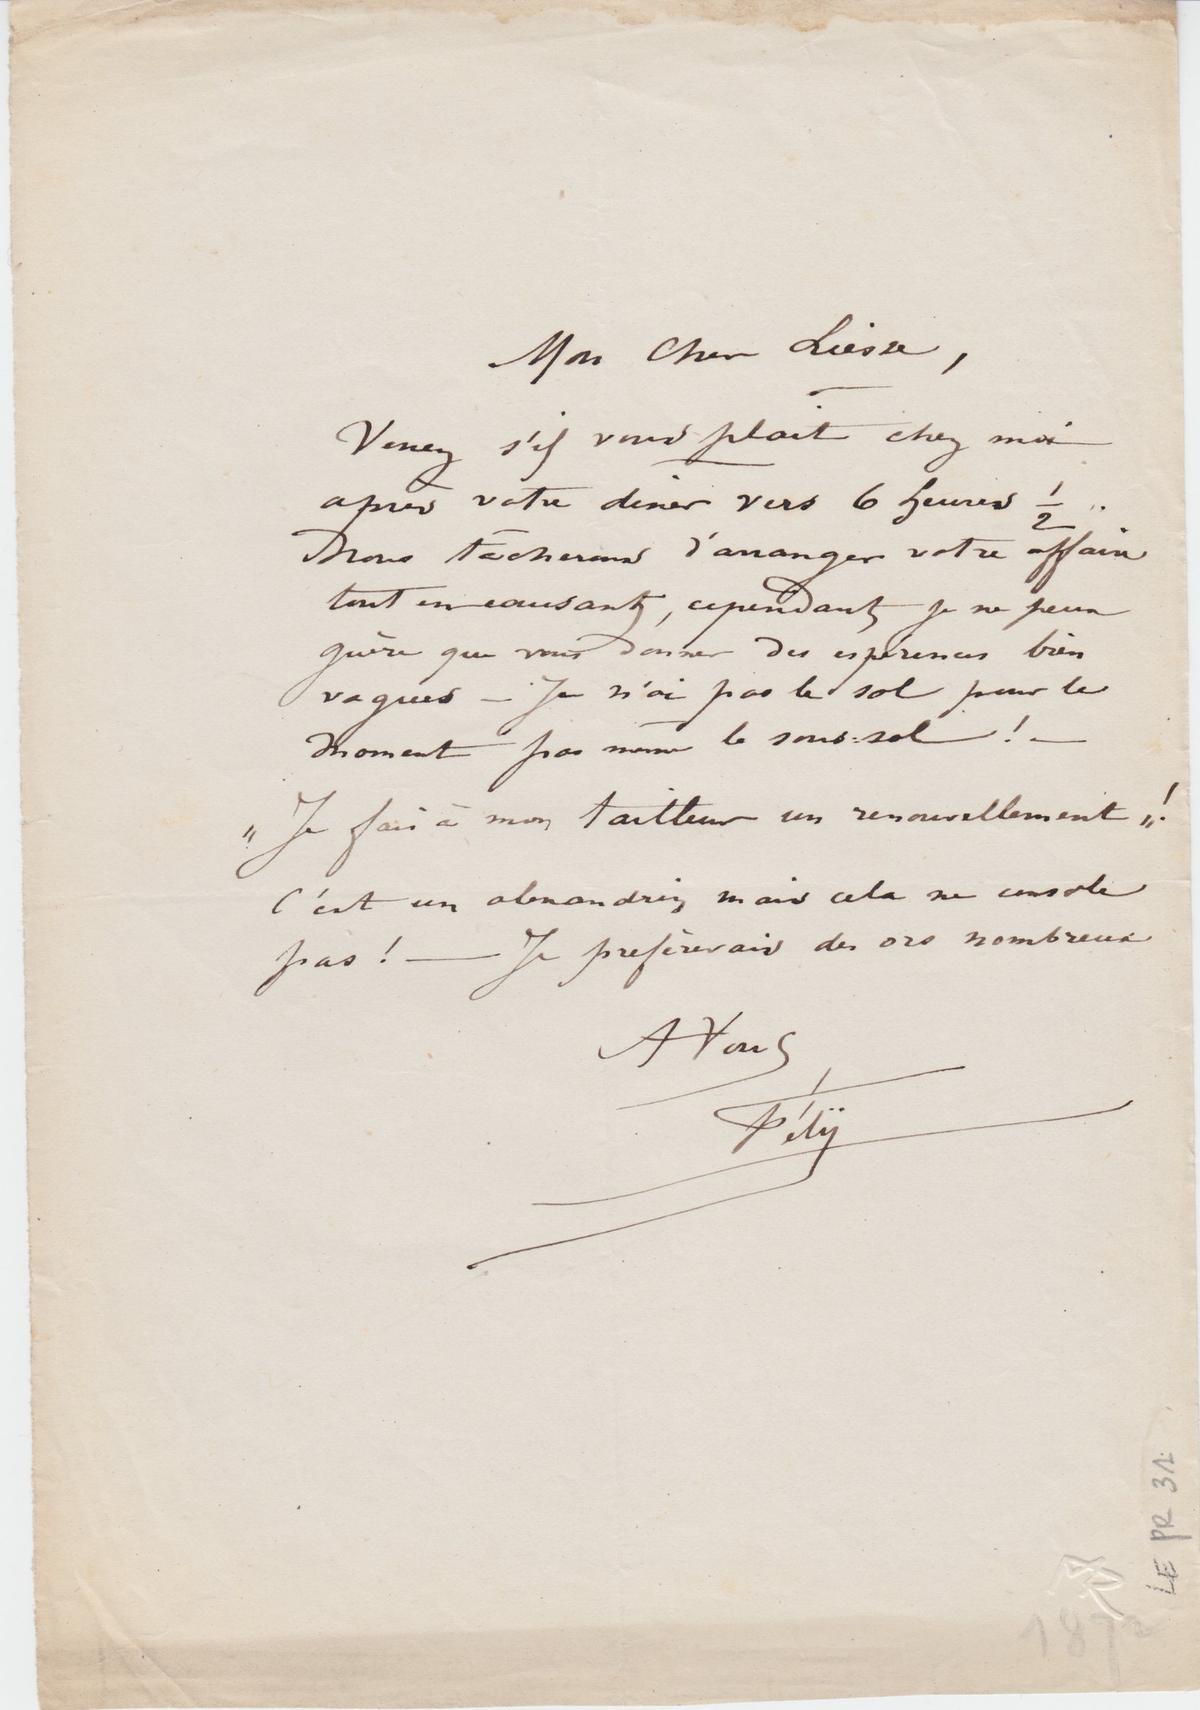 Mon Cher Liesse,
Venez s'il vous plait chez moi
après votre diner vers 6 heures 1/2.
Nous tâcherons d'arranger votre affaire
tout en causant, cependant je ne peux
guère que vous donner des espérances bien
vagues — Je n'ai pas le sol pour le
moment pas même le sous-sol ! —
" Je fais à mon tailleur un renouvellement " !
C'est un alexandrin mais cela ne console
pas ! — Je prefèrerais des ors nombreux
A Vous
Félÿ
LE PR 31.